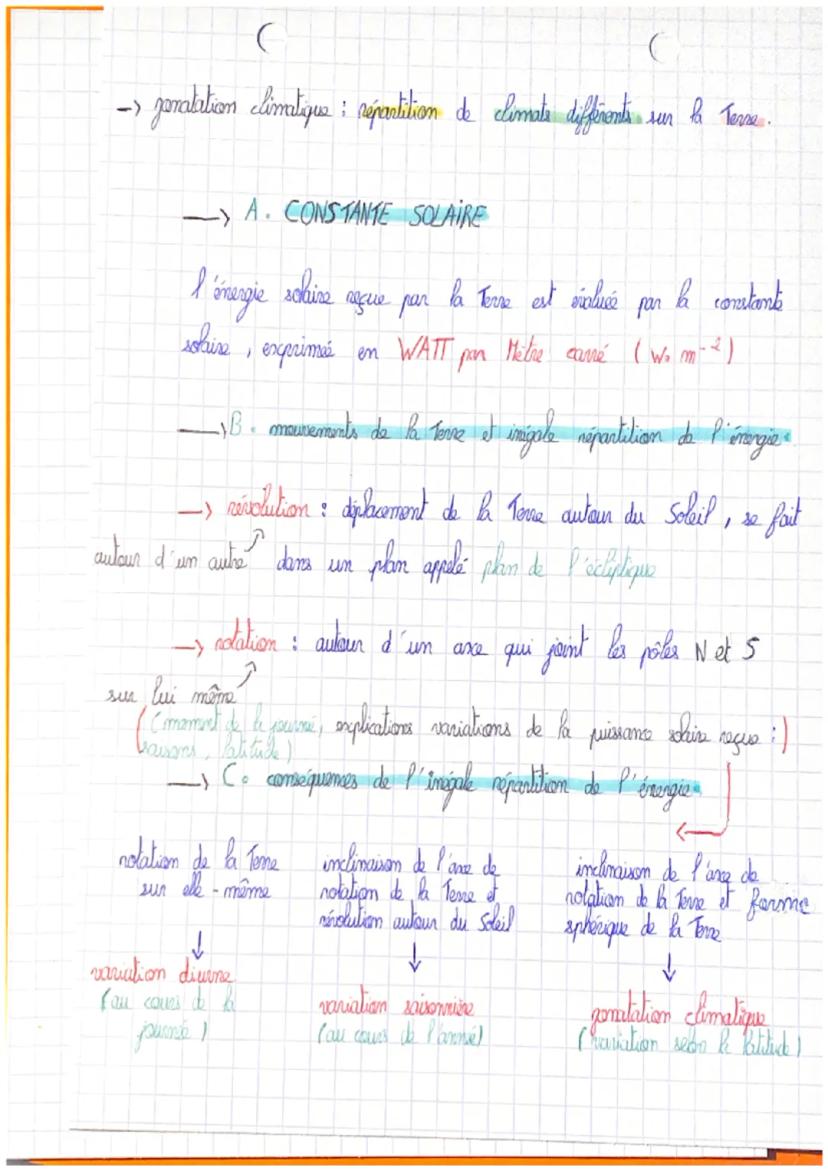 -> zonatation climatique : répartition de climats différents sur la Terre.
-> A. CONSTANTE SOLAIRE
l'énergie solaire reçue par la Terre est évaluée par la constante
solaire, exprimée en WATT par Mètre carré (W. m⁻²)
-> B. mouvements de la Terre et inégale répartition de l'énergie.
-> révolution : déplacement de la Terre autour du Soleil, se fait
autour d'un autre dans un plan appelé plan de l'écliptique
-> rotation : autour d'un axe qui joint les pôles N et S
sur lui même
(moment de la journé, explications variations de la puissance solaire reçue :)
saisons, latitude)
-> C. conséquences de l'inégale répartition de l'énergie.
rotation de la Terre
sur elle-même
↓
variation diurne
(au cours de la
journée)
inclinaison de l'axe de
rotation de la Terre et
révolution autour du Soleil
↓
variation saisonnière
(au cours de l'année)
inclinaison de l'axe de
rotation de la Terre et forme
sphérique de la Terre
↓
zonatation climatique
(variation selon la latitude)